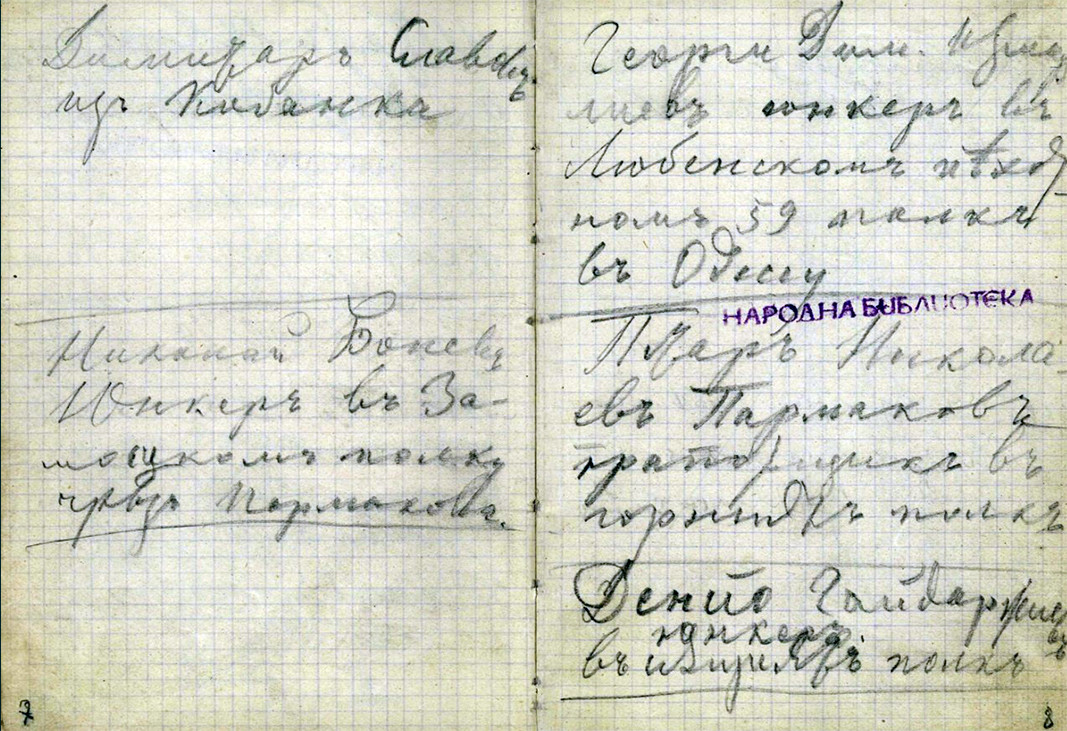 Димитаръ Славовъ
изъ Кобанка
Николай Боневъ
Юнкеръ въ За-
мосцкомъ полку
чрѣзъ Пармакова.
7
Георги Дим.
лиевъ юнкеръ въ
Любенскомъ пѣхот
номъ 59 полкъ
въ Одессу
НАРОДНА БИБЛИОТЕКА
Никола-
евъ Пармаковъ
прапорщикъ въ
полкъ
Денчо Гайдарджиевъ
юнкеръ
въ полкъ
8